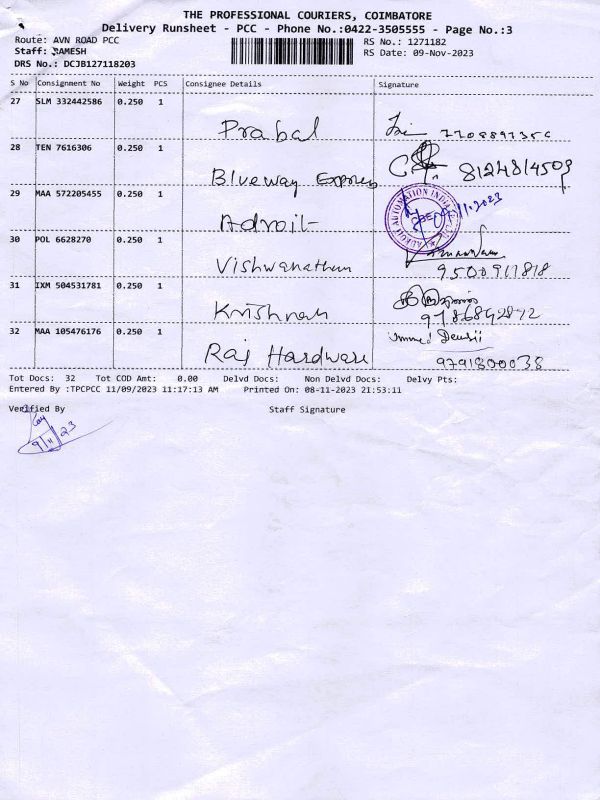 THE PROFESSIONAL COURIERS, COIMBATORE
Delivery Runsheet - PCC - Phone No.:0422-3505555 - Page No.:3
Route: AVN ROAD PCC RS No.: 1271182
Staff: RAMESH RS Date: 09-Nov-2023
DRS No.: DCJB127118203
S No Consignment No Weight PCS Consignee Details Signature
27 SLM 332442586 0.250 1
Prabal
28 TEN 7616306 0.250 1
Blueway Express 8124814509
29 MAA 572205455 0.250 1
Adroit
30 POL 6628270 0.250 1
Vishwanathan 9500911818
31 IXM 504531781 0.250 1
Krishnan 9786842872
32 MAA 105476176 0.250 1
Raj Hardware 9791800038
Tot Docs: 32 Tot COD Amt: 0.00 Delvd Docs: Non Delvd Docs: Delvy Pts:
Entered By :TPCPCC 11/09/2023 11:17:13 AM Printed On: 08-11-2023 21:53:11
Verified By Staff Signature
9/11/23